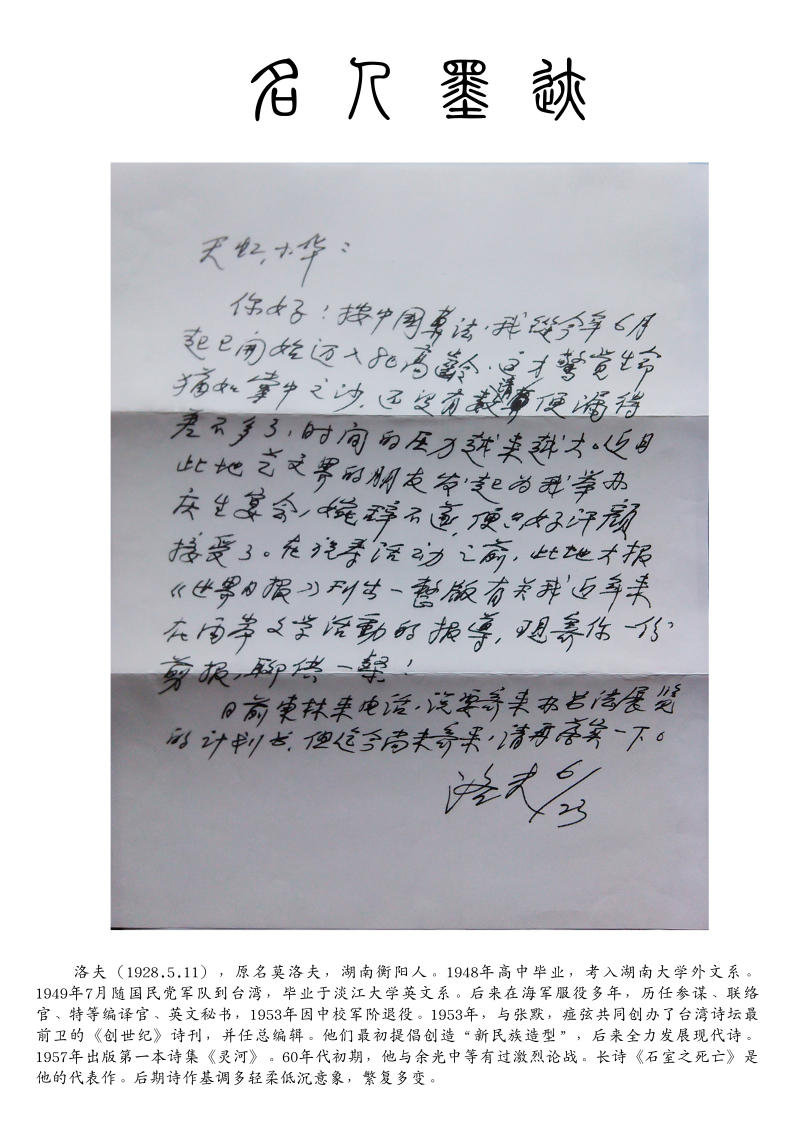 名人墨迹
天虹, 小华：
你好！按中国算法，我從今年6月
起已開始迈入80高齡，这才驚覚生命
猶如掌中之沙，还没有数清便漏得
差不多了，时间的压力越来越大。近日
此地艺文界的朋友发起为我举办
庆生宴会，婉辞不遂，便只好汗颜
接受了。在祝寿活动之前，此地大报
《世界日报》刊出一整版有关我近年来
在两岸文学活動的报導，现寄你一份
剪报，聊供一粲！
日前東林来电话，说要寄来办书法展览
的计划书，但迄今尚未寄来，请再落实一下。
洛夫 6/23
洛夫（1928.5.11），原名莫洛夫，湖南衡阳人。1948年高中毕业，考入湖南大学外文系。
1949年7月随国民党军队到台湾，毕业于淡江大学英文系。后来在海军服役多年，历任参谋、联络
官、特等编译官、英文秘书，1953年因中校军阶退役。1953年，与张默，痖弦共同创办了台湾诗坛最
前卫的《创世纪》诗刊，并任总编辑。他们最初提倡创造“新民族造型”，后来全力发展现代诗。
1957年出版第一本诗集《灵河》。60年代初期，他与余光中等有过激烈论战。长诗《石室之死亡》是
他的代表作。后期诗作基调多轻柔低沉意象，繁复多变。